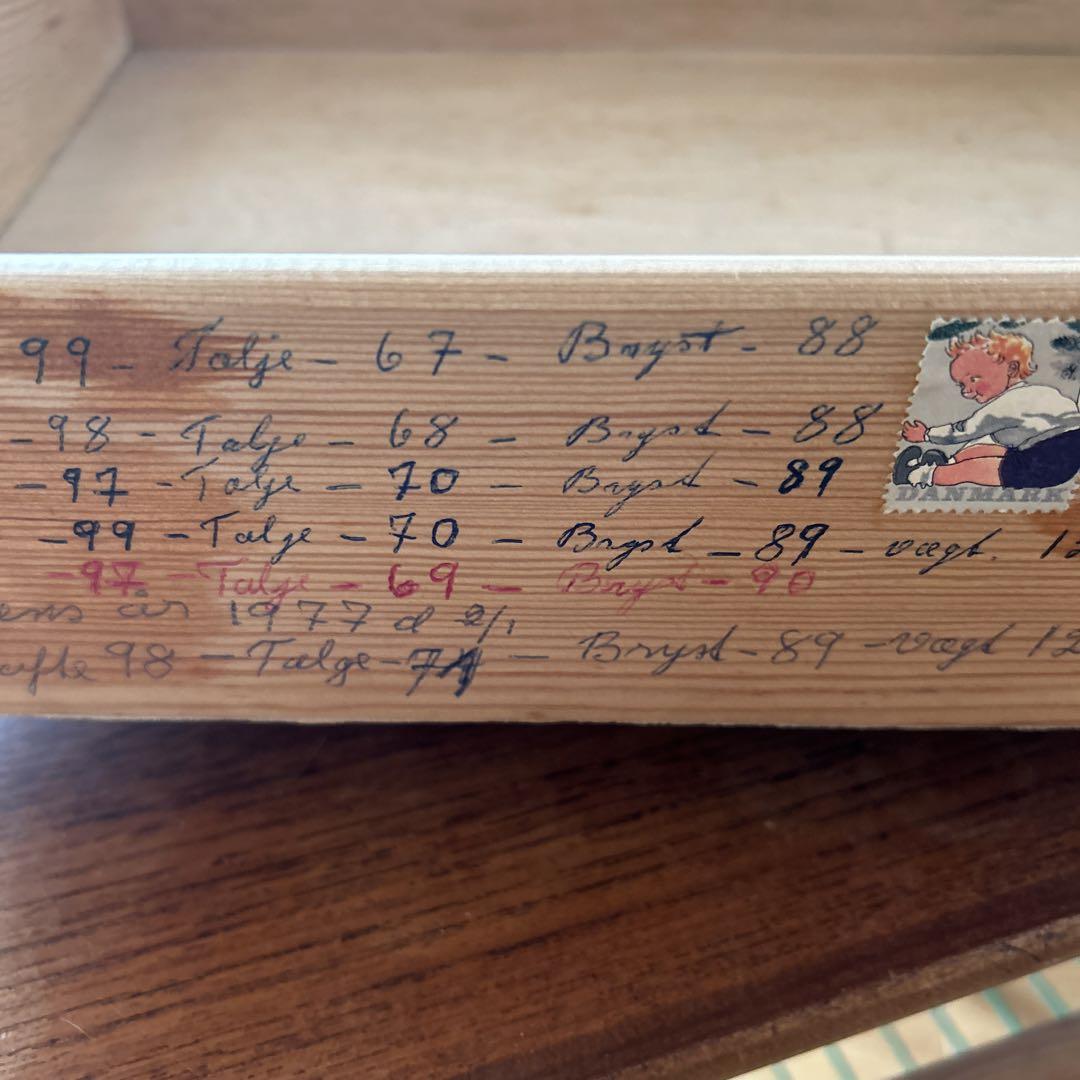 99 - Talje - 67 - Bryst - 88
-98 - Talje - 68 - Bryst - 88
-97 - Talje - 70 - Bryst - 89
-99 - Talje - 70 - Bryst - 89 - vægt. 12
-97 - Talje - 69 - Bryst - 90
ens år 1977 d 2/1
ofte 98 - Talge - 71 - Bryst - 89 - vægt 12
DANMARK